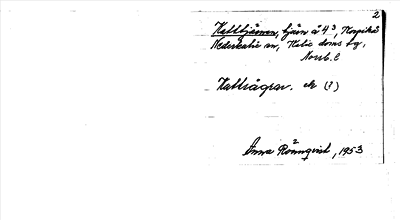 2
Kalltjärnen, tjärn å 4³, Korpikå
Nederkalix sn, Kalix doms tg,
Norrb. l
Kalltrågrav. ek (?)
Anna Rönnqvist, 1953
2